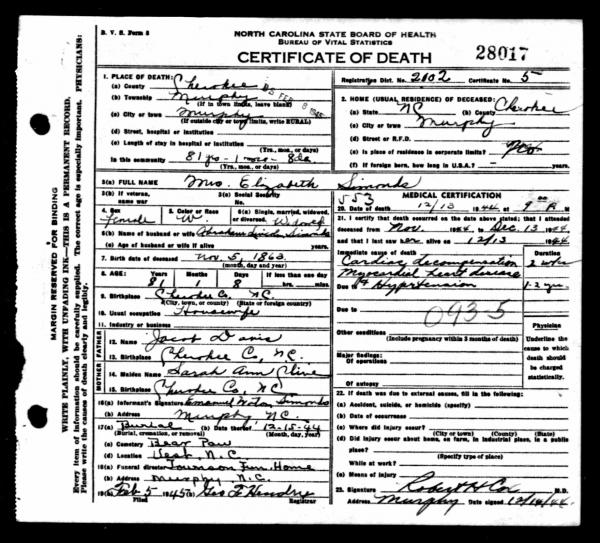 B. V. S. Form 8
NORTH CAROLINA STATE BOARD OF HEALTH
BUREAU OF VITAL STATISTICS
CERTIFICATE OF DEATH
28017
MARGIN RESERVED FOR BINDING
WRITE PLAINLY, WITH UNFADING INK—THIS IS A PERMANENT RECORD.
Every item of information should be carefully supplied. The correct age is especially important. PHYSICIANS:
Please write the causes of death clearly and legibly.
Registration Dist. No. 2002 Certificate No. 5
1. PLACE OF DEATH:
(a) County Cherokee
FEB 8 1945
(b) Township Murphy
(If in town limits, leave blank)
(c) City or town Murphy
(If outside city or town limits, write RURAL)
(d) Street, hospital or institution
(e) Length of stay in hospital or institution
(Yrs., mos. or days)
In this community 81 yrs - 1 mos - 8 da
(Yrs., mos. or days)
2. HOME (USUAL RESIDENCE) OF DECEASED:
(a) State NC (b) County Cherokee
(c) City or town Murphy
(d) Street or R.F.D.
(e) Is place of residence in corporate limits? No
(f) If foreign born, how long in U.S.A.?
3(a) FULL NAME Mrs. Elizabeth Simonds
3(b) If veteran, name war
3(c) Social Security No.
4. Sex Female
5. Color or Race W.
6(a) Single, married, widowed, or divorced Widowed
6(b) Name of husband or wife Abraham Lincoln Simonds
6(c) Age of husband or wife if alive
7. Birth date of deceased Nov. 5, 1863
(month, day and year)
8. AGE: Years Months Days If less than one day
81 1 8 hrs. min.
9. Birthplace Cherokee Co. N.C.
(City, town, or county) (State or foreign country)
10. Usual occupation Housewife
11. Industry or business
FATHER
12. Name Jacob Davis
13. Birthplace Cherokee Co, N.C.
MOTHER
14. Maiden Name Sarah Ann Cline
15. Birthplace Cherokee Co, N.C.
16(a) Informant's Signature Emanuel Simonds
(b) Address Murphy N.C.
17(a) Burial (b) Date thereof 12-15-44
(Burial, cremation, or removal) (Month, day, year)
(c) Cemetery Bear Paw
(d) Location Vest, N.C.
18(a) Funeral director Townson Fun. Home
(b) Address Murphy N.C.
19(a) Feb 5 1945 (b) Geo F Hendrix
Filed Registrar
MEDICAL CERTIFICATION
553
20. Date of death 12/13 1944 at 9 00 A M
21. I certify that death occurred on the date above stated; that I attended
deceased from Nov. 1944 to Dec. 13 1944
and that I last saw her alive on 12/13 1944
Immediate cause of death
Cardiac decompensation 2 wks
Myocardial heart disease
Due to Hypertension 1-2 yrs
Due to
0935
Other conditions
(Include pregnancy within 3 months of death)
Major findings:
Of operations
Of autopsy
Physician
Underline the cause to which death should be charged statistically.
22. If death was due to external causes, fill in the following:
(a) Accident, suicide, or homicide (specify)
(b) Date of occurrence
(c) Where did injury occur?
(City or town) (County) (State)
(d) Did injury occur about home, on farm, in industrial place, in a public place?
(Specify type of place)
While at work?
(e) Means of injury
23. Signature Robert H Cox M.D.
Murphy Date signed 12/14/44